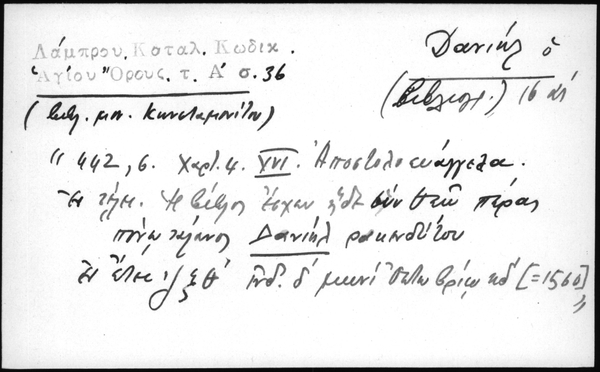 Λάμπρου, Καταλ. Κωδικ.
Ἁγίου Ὄρους, τ. Α' σ. 36
(βιβλ. μον. Κωνσταμονίτου)
Δανιήλ ὁ
(βιβλιογρ.) 16 αἰ
"442, 6. Χαρτ. 4. XVI. Ἀποστολοευάγγελα.
Ἐν τέλει. Ἡ βίβλος ἔσχεν ἥδε σὺν Θεῷ πέρας
πόνῳ Δανιήλ ρακενδύτου
Ἐν ἔτει ͵ζξθ' Ἰνδ. δ' μηνὶ Ὀκτωβρίῳ κδ' [=1560]"